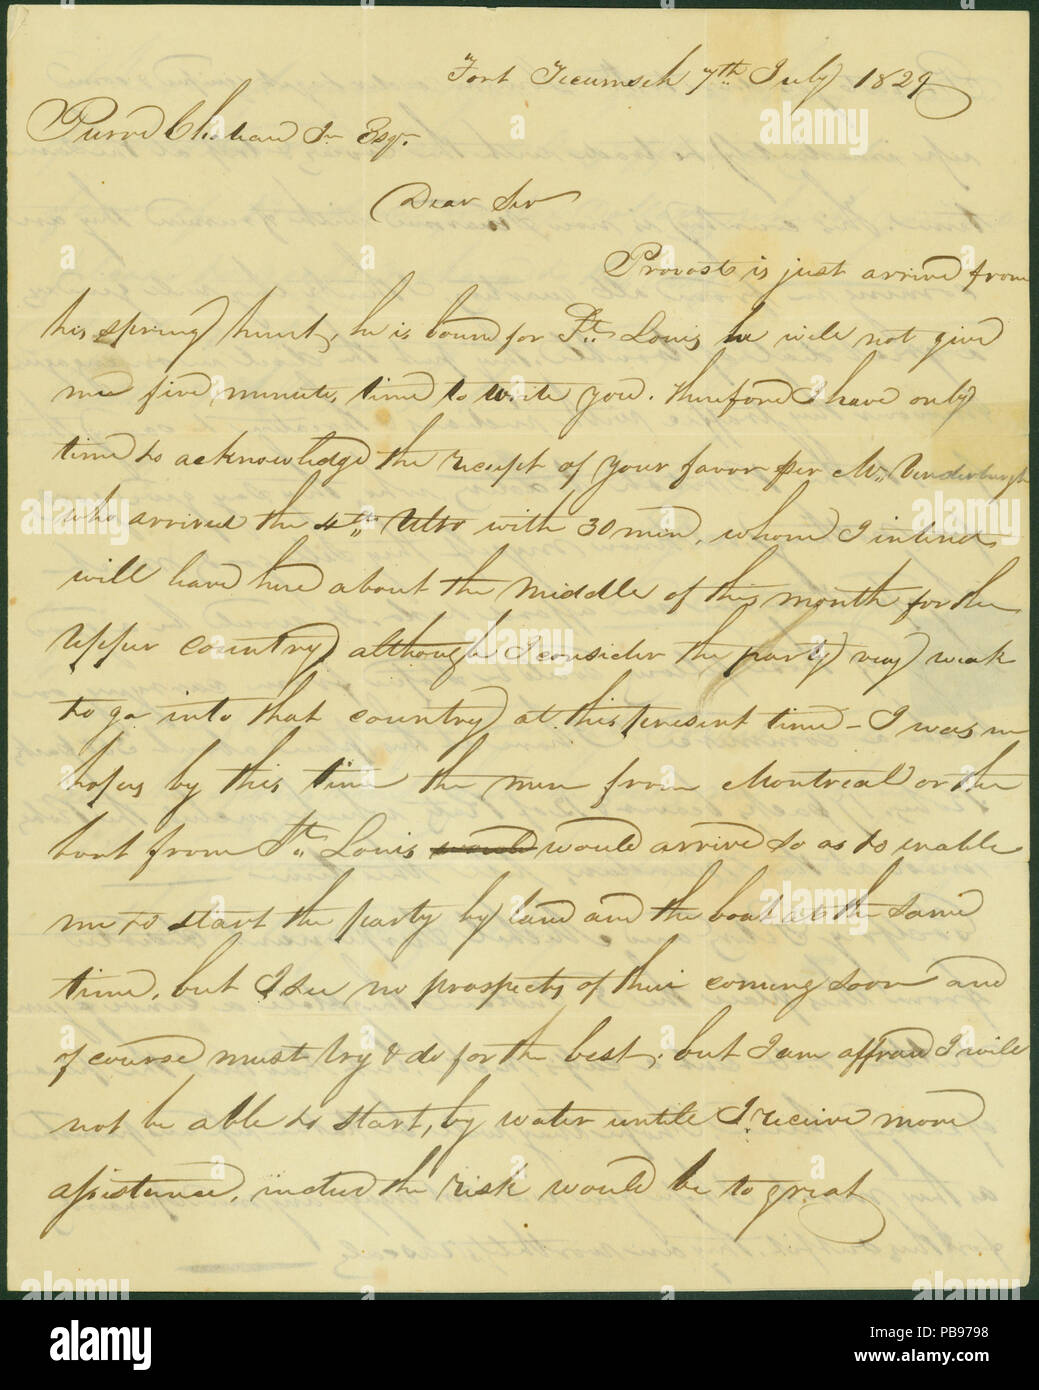 Fort Tecumseh 7th July 1829
Pierre Chouteau Jr Esqr.
Dear Sir
Provost is just arrived from
his spring hunt, he is bound for St. Louis he will not give
me five minute, time to write you. Therefore I have only
time to acknowledge the receipt of your favor per Mr. Vanderburgh
who arrived the 4th Ulto with 30 men, whom I intend
will leave here about the middle of this month for the
Upper country, although I consider the party very weak
to go into that country at this present time – I was in
hopes by this time the men from Montreal or the
boat from St. Louis would would arrive so as to enable
me to start the party by land and the boat at the same
time, but I see no prospects of their coming soon and
of course must try & do for the best, but I am affraid I will
not be able to start, by water untill I receive more
assistance, indeed the risk would be to great
alamy
PB9798
www.alamy.com